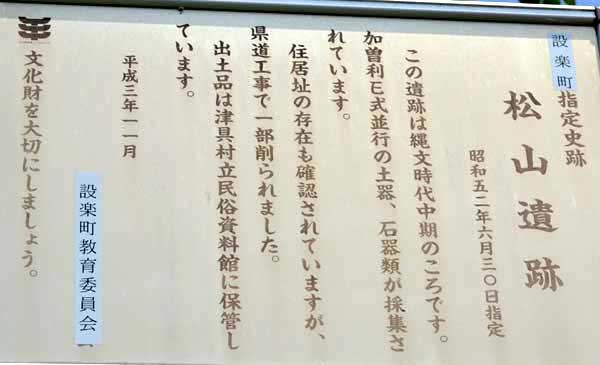 設楽町指定史跡
松山遺跡
昭和五二年六月三〇日指定
この遺跡は縄文時代中期のころです。
加曽利E式並行の土器、石器類が採集さ
れています。
住居址の存在も確認されていますが、
県道工事で一部削られました。
出土品は津具村立民俗資料館に保管し
ています。
平成三年一一月
設楽町教育委員会
文化財を大切にしましょう。